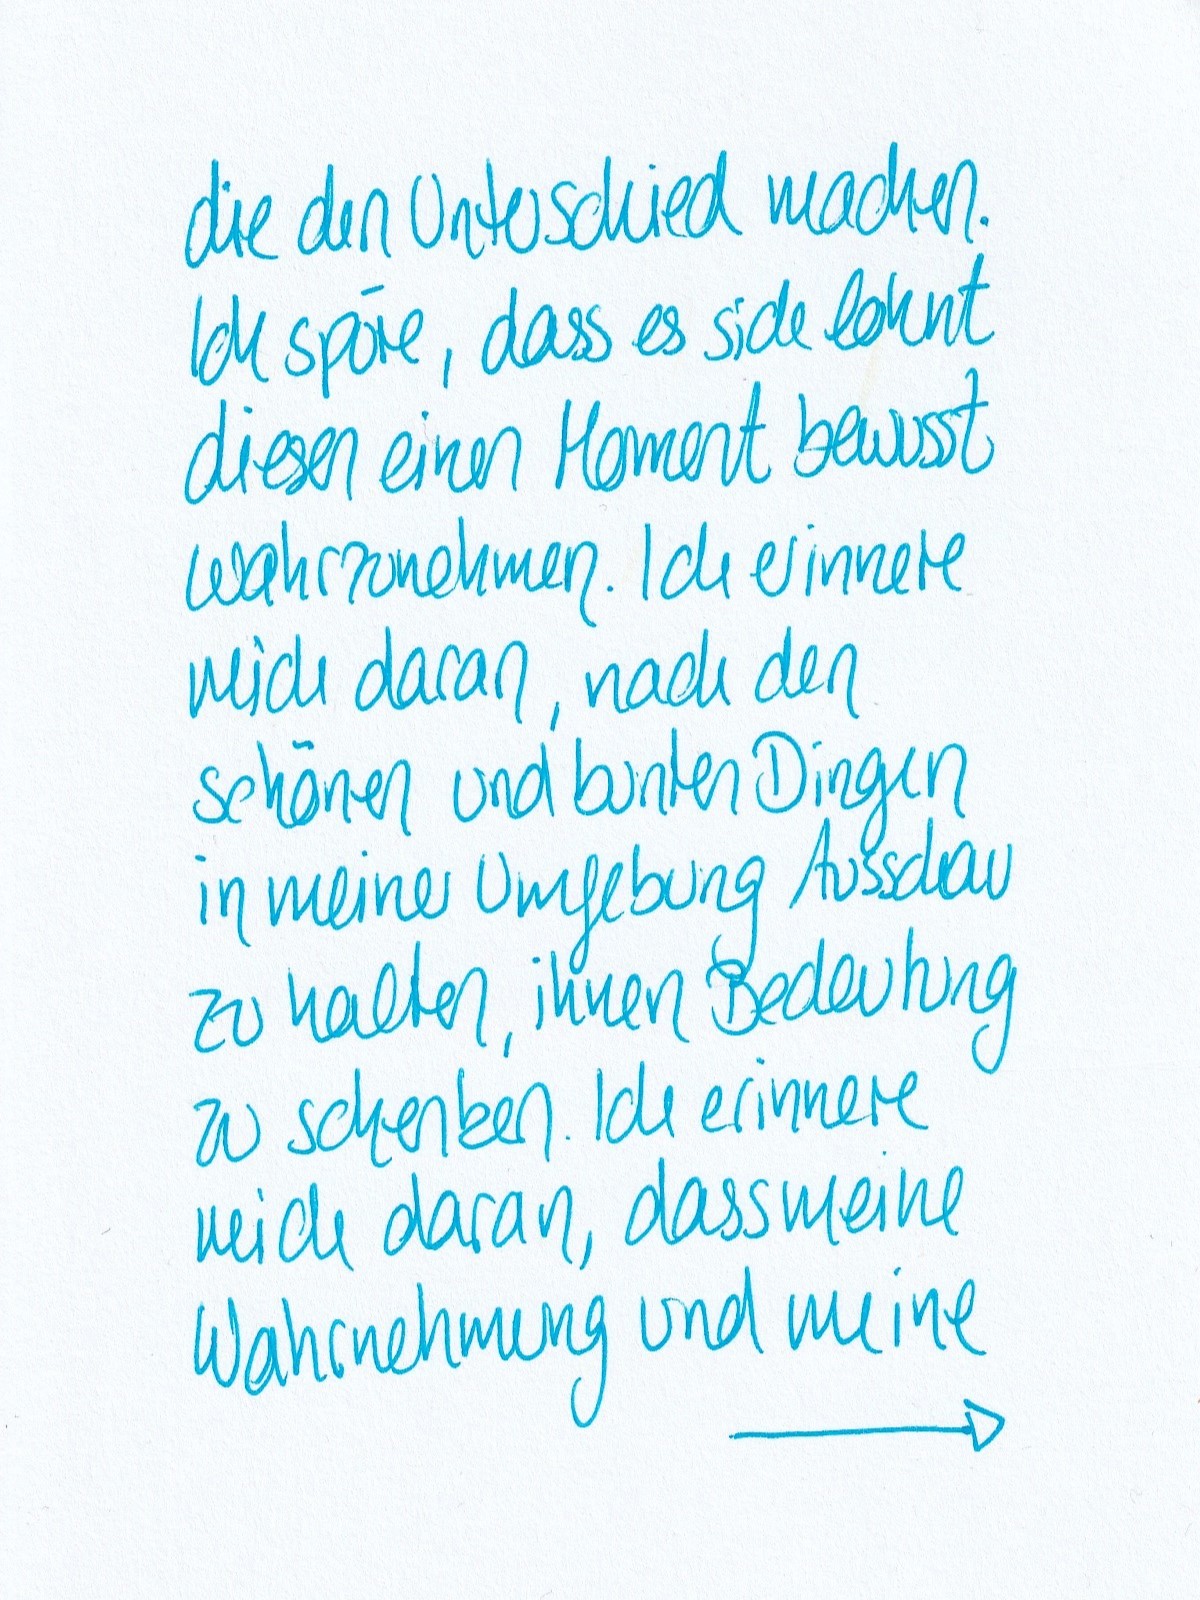 die den Unterschied machen.
Ich spüre, dass es sich lohnt
diesen einen Moment bewusst
wahrzunehmen. Ich erinnere
mich daran, nach den
schönen und bunten Dingen
in meiner Umgebung Ausschau
zu halten, ihnen Bedeutung
zu schenken. Ich erinnere
mich daran, dass meine
Wahrnehmung und meine